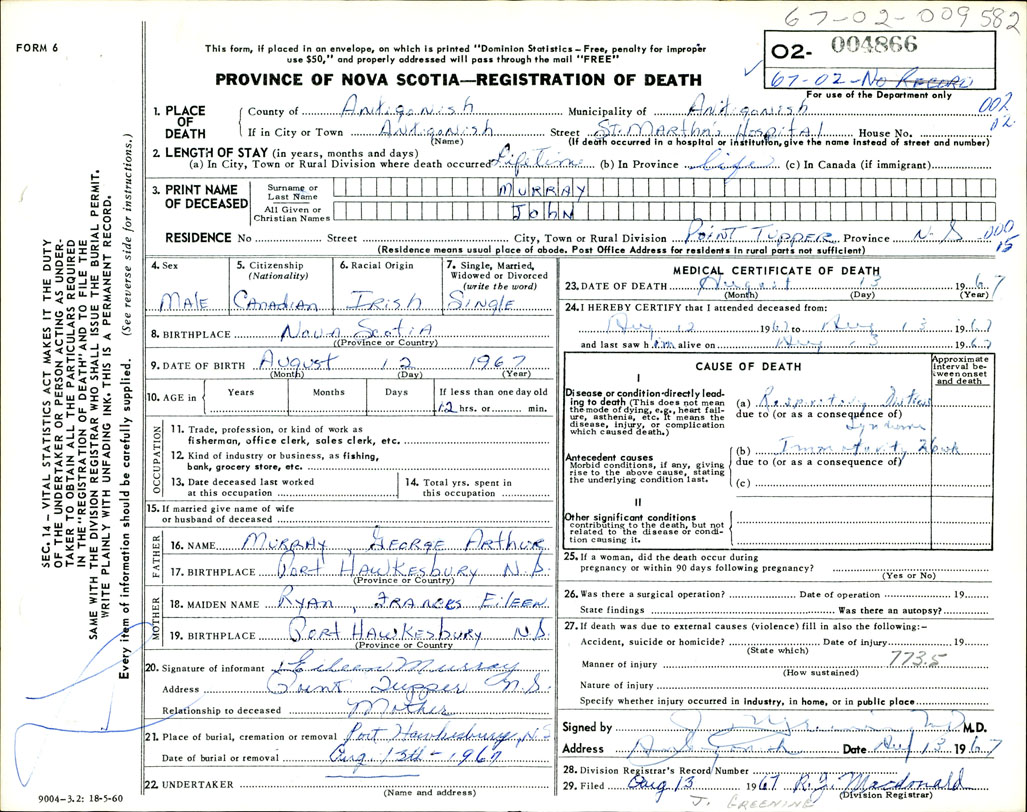 67-02-009582
FORM 6
This form, if placed in an envelope, on which is printed "Dominion Statistics – Free, penalty for improper
use $50," and properly addressed will pass through the mail "FREE"
02- 004866
67-02-No Record
For use of the Department only
PROVINCE OF NOVA SCOTIA—REGISTRATION OF DEATH
002
02
1. PLACE OF DEATH
County of Antigonish Municipality of Antigonish
If in City or Town Antigonish Street St. Martha's Hospital House No.
(Name) (If death occurred in a hospital or institution, give the name instead of street and number)
2. LENGTH OF STAY (in years, months and days)
(a) In City, Town or Rural Division where death occurred Lifetime (b) In Province Life (c) In Canada (if immigrant)
3. PRINT NAME OF DECEASED
Surname or Last Name MURRAY
All Given or Christian Names JOHN
RESIDENCE No Street City, Town or Rural Division POINT TUPPER Province N.S. 000
15
(Residence means usual place of abode. Post Office Address for residents in rural parts not sufficient)
4. Sex MALE
5. Citizenship (Nationality) Canadian
6. Racial Origin Irish
7. Single, Married, Widowed or Divorced (write the word) Single
8. BIRTHPLACE Nova Scotia
(Province or Country)
9. DATE OF BIRTH August 12 1967
(Month) (Day) (Year)
10. AGE in Years Months Days If less than one day old
12 hrs. or min.
OCCUPATION
11. Trade, profession, or kind of work as
fisherman, office clerk, sales clerk, etc.
12. Kind of industry or business, as fishing,
bank, grocery store, etc.
13. Date deceased last worked
at this occupation
14. Total yrs. spent in
this occupation
15. If married give name of wife
or husband of deceased
FATHER
16. NAME MURRAY, GEORGE ARTHUR
17. BIRTHPLACE PORT HAWKESBURY N.S.
(Province or Country)
MOTHER
18. MAIDEN NAME RYAN, FRANCES EILEEN
19. BIRTHPLACE PORT HAWKESBURY NS.
(Province or Country)
20. Signature of informant Eileen Murray
Address Point Tupper N.S.
Relationship to deceased Mother
21. Place of burial, cremation or removal Port Hawkesbury, N.S
Date of burial or removal Aug. 13th - 1967
22. UNDERTAKER
(Name and address)
MEDICAL CERTIFICATE OF DEATH
23. DATE OF DEATH August 13 1967
(Month) (Day) (Year)
24. I HEREBY CERTIFY that I attended deceased from:
Aug 12 1967 to Aug 13 1967
and last saw him alive on Aug 13 1967
CAUSE OF DEATH
Approximate interval between onset and death
I
Disease or condition directly leading to death (This does not mean the mode of dying, e.g., heart failure, asthenia, etc. It means the disease, injury, or complication which caused death.)
(a) Respiratory Distress
due to (or as a consequence of)
Syndrome
Antecedent causes
Morbid conditions, if any, giving rise to the above cause, stating the underlying condition last.
(b) Immaturity 26wk
due to (or as a consequence of)
(c)
II
Other significant conditions
contributing to the death, but not related to the disease or condition causing it.
25. If a woman, did the death occur during
pregnancy or within 90 days following pregnancy?
(Yes or No)
26. Was there a surgical operation? Date of operation 19
State findings Was there an autopsy?
27. If death was due to external causes (violence) fill in also the following:–
Accident, suicide or homicide? Date of injury 19
(State which)
Manner of injury 773.5
(How sustained)
Nature of injury
Specify whether injury occurred in industry, in home, or in public place
Signed by M.D.
Address Antigonish Date Aug 13 1967
28. Division Registrar's Record Number
29. Filed Aug 13 1967 R.J. Macdonald
(Division Registrar)
J. GREENING
SEC. 14 – VITAL STATISTICS ACT MAKES IT THE DUTY
OF THE UNDERTAKER OR PERSON ACTING AS UNDER-
TAKER TO OBTAIN ALL THE PARTICULARS REQUIRED
IN THE "REGISTRATION OF DEATH" AND TO FILE THE
SAME WITH THE DIVISION REGISTRAR WHO SHALL ISSUE THE BURIAL PERMIT.
WRITE PLAINLY WITH UNFADING INK. THIS IS A PERMANENT RECORD.
Every item of information should be carefully supplied. (See reverse side for instructions.)
9004-3.2: 18-5-60